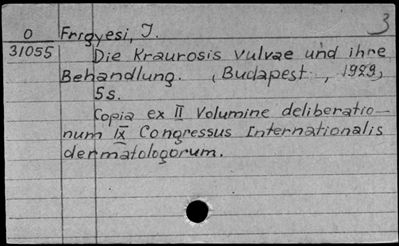 3
O Frigyesi, J.
31055 Die Kraurosis vulvae und ihre
Behandlung. (Budapest, 1929,
5s.
Copia ex II Volumine deliberatio-
num IX Congressus Internationalis
dermatologorum.